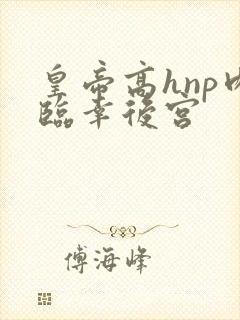 皇帝高hnp内
臨幸後宮
傅海峰